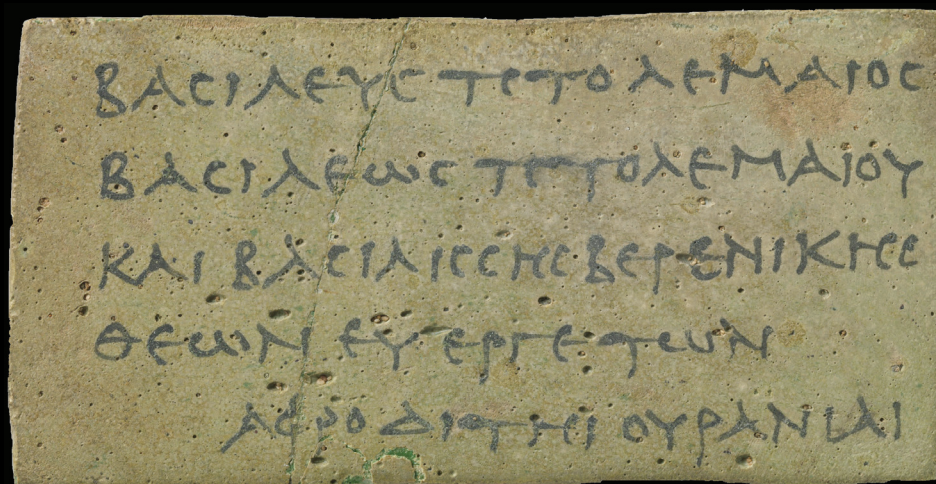 ΒΑСΙΛΕΥС ΠΤΟΛΕΜΑΙΟС
ΒΑСΙΛΕωС ΠΤΟΛΕΜΑΙΟΥ
ΚΑΙ ΒΑСΙΛΙССΗС ΒΕΡΕΝΙΚΗС
ΘΕωΝ ΕΥΕΡΓΕΤωΝ
ΑΦΡΟΔΙΤΗΙ ΟΥΡΑΝΙΑΙ